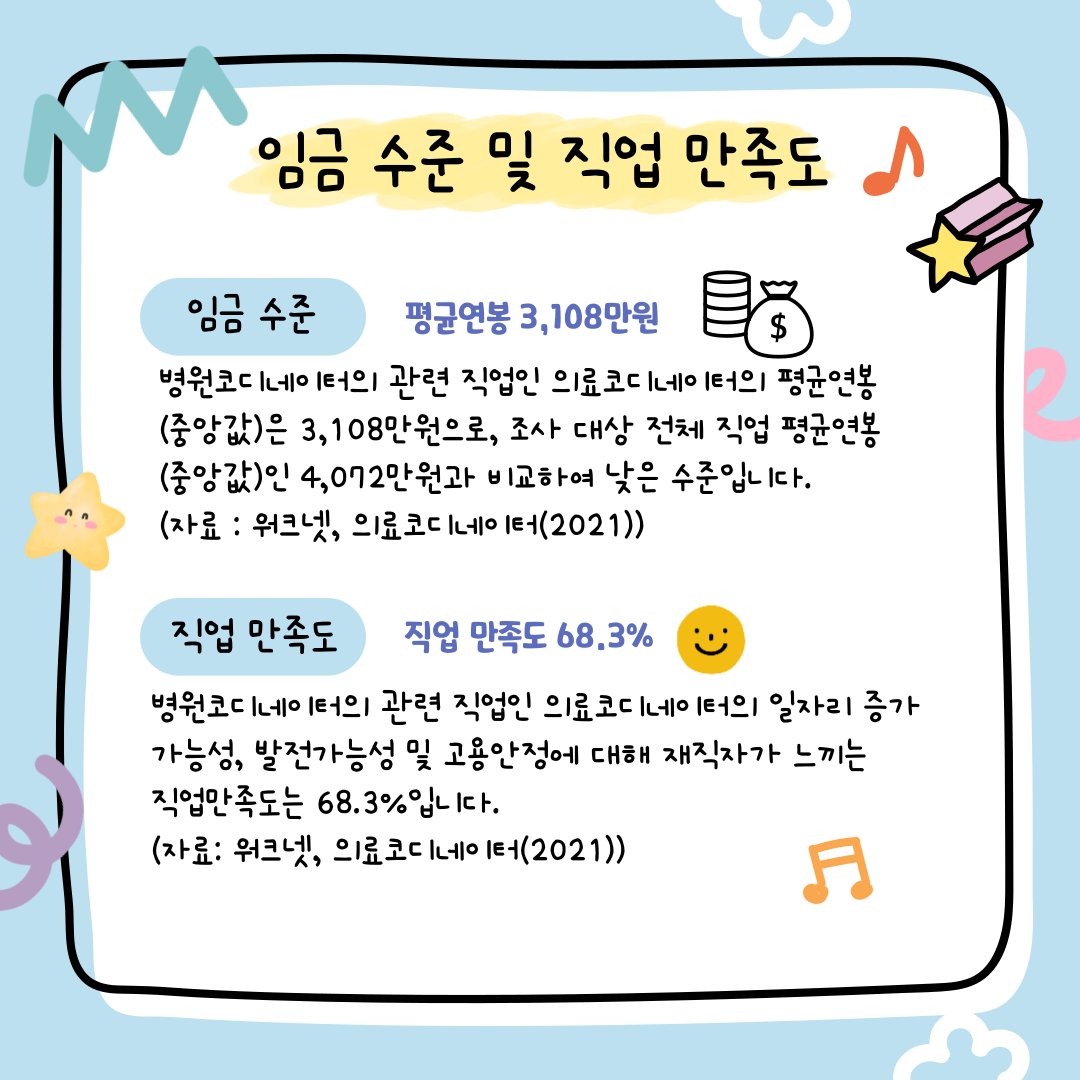 임금 수준 및 직업 만족도
임금 수준
평균연봉 3,108만원
$
병원코디네이터의 관련 직업인 의료코디네이터의 평균연봉
(중앙값)은 3,108만원으로, 조사 대상 전체 직업 평균연봉
(중앙값)인 4,072만원과 비교하여 낮은 수준입니다.
(자료 : 워크넷, 의료코디네이터(2021))
직업 만족도
직업 만족도 68.3%
병원코디네이터의 관련 직업인 의료코디네이터의 일자리 증가
가능성, 발전가능성 및 고용안정에 대해 재직자가 느끼는
직업만족도는 68.3%입니다.
(자료: 워크넷, 의료코디네이터(2021))